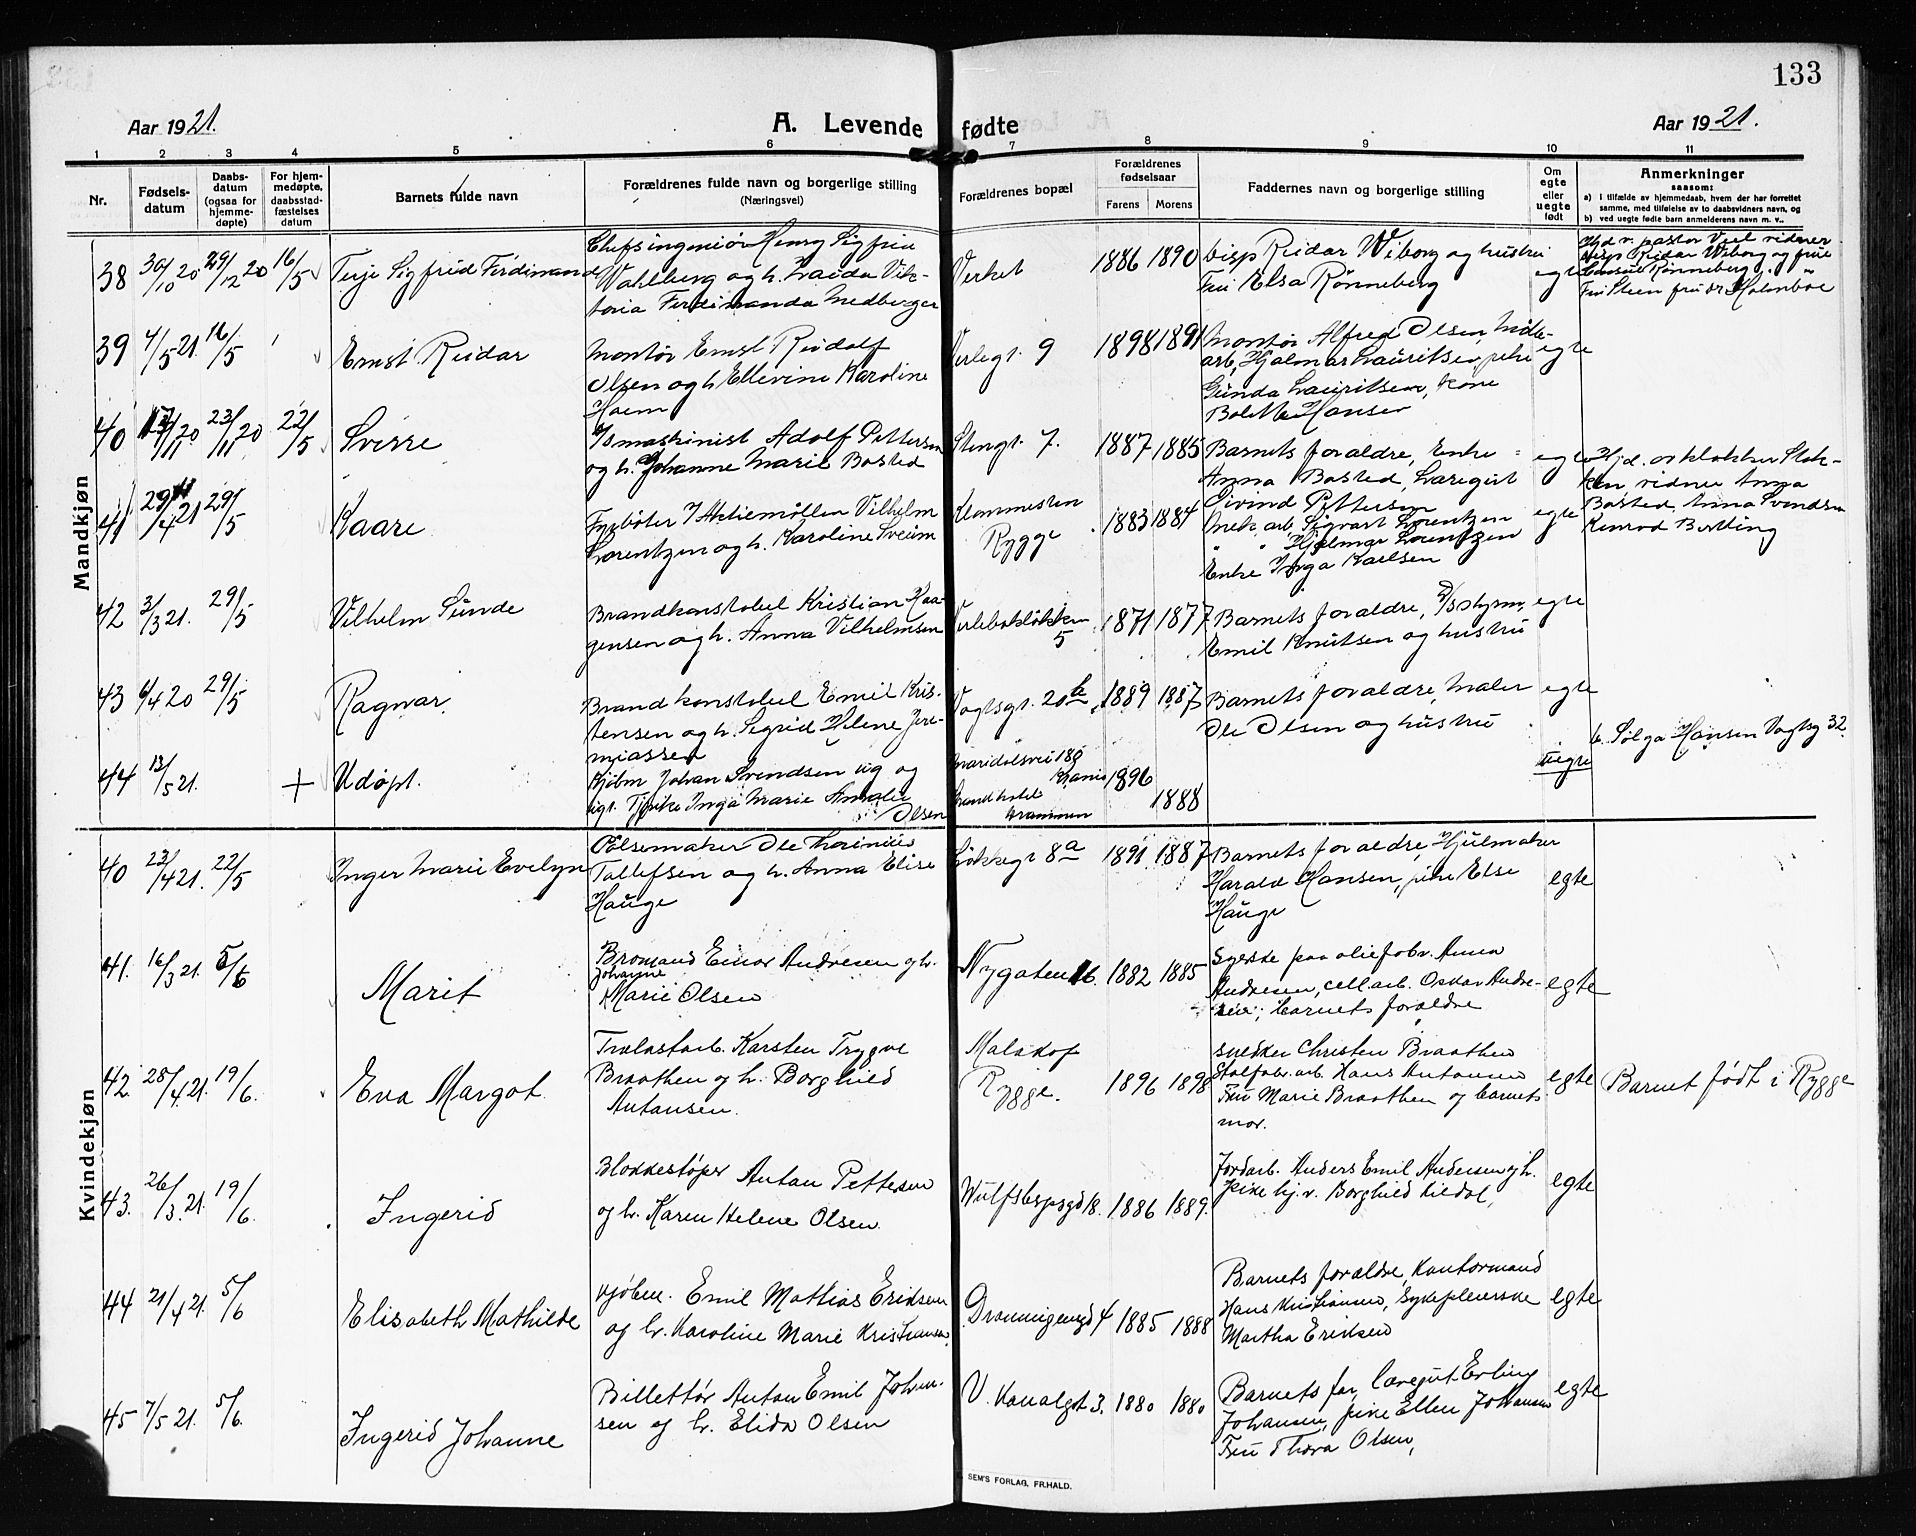 133
Aar 1921.
A. Levende fødte
Aar 1921.
1 2 3 4 5 6 7 8 9 10 11
Nr.
Fødsels-
datum
Daabs-
datum
(ogsaa for
hjemme-
døpte)
For hjem-
medøpte,
daabsstad-
fæstelses
datum
Barnets fulde navn
Forældrenes fulde navn og borgerlige stilling
(Næringsvei)
Forældrenes bopæl
Forældrenes
fødselsaar
Farens
Morens
Faddernes navn og borgerlige stilling
Om
egte
eller
uegte
født
Anmerkninger
saasom:
a) i tilfælde av hjemmedaab, hvem der har forrettet
samme, med tilføielse av to daabsvidners navn, og
b) ved uegte fødte barn anmelderens navn m. v..
Mandkjøn
38 30/10 20 29/12 20 16/5 Terje Sigfrid Ferdinand
Chefsingeniør Henry Sigfrid
Wahlberg og h. Vik-
toria Ferdinanda Medberger
Verket 1886 1890
Disp Reidar Wiborg og hustru
Fru Elsa Rønneberg
egte
Hjd v. pastor vidner
Disp Reidar Wiborg og frue
Rønneberg
Fru Steen fru dr Holmboe
39 4/5 21. 16/5 Ernst Reidar
Montør Ernst Rudolf
Olsen og h Ellevine Karoline
Holm
Verlegt. 9 1898 1891
Montør Alfred Olsen,
arb. Hjalmar Lauritsen, pike
Gunda Lauritsen, kone
Bolette Hansen
egte
40 /11 20 23/11 20 22/5 Sverre
Ismaskinist Adolf Pettersen
og h. Johanne Marie Basted
Stengt. 7. 1887 1885
Barnets forældre, Enke
Anna Basted, Læregut
Øivind Pettersen
egte
Hjd. av klokker Slok-
ken vidner Anna
Basted, Anna Svendsen
Konrad Berthing
41 29/4 21 29/5 Kaare
Fyrbøter i Aktiemøllen Vilhelm
Lorentzen og h. Karoline Sveum
Klommesten
Rygge 1883 1884
Mek arb. Sigvart Lorentzen
" " Hjalmar Lorentzen
Enke Inga Karlsen
egte
42 3/3 21. 29/5 Vilhelm Sunde
Brandkonstabel Kristian Haa-
gensen og h. Anna Vilhelmsen
Verlebakløkken
5 1871 1877
Barnets forældre, D/S styrm,
Emil Knutsen og hustru
egte
43 6/4 20 29/5 Ragnar
Brandkonstabel Emil Kris-
tensen og h. Sigrid Helene Jere-
miassen
Vogtsgt. 20b 1889 1887
Barnets forældre, Maler
Ole Olsen og hustru
egte
44 13/5 21. + Udøpt.
Kjøbm Johan Svendsen ug og
ugt. Tjenke Inga Marie Amalie
Olsen
Maridalsvei 180
Krania
Drammen 1896
1888
uegte
b. Solga Hansen Vogtsg 32
Kvindekjøn
40 23/4 21. 22/5 Inger Marie Evelyn
Pølsemaker Ole Thorinius
Tollefsen og h. Anna Elise
Hauge
Løkkegt 8a 1891 1887
Barnets forældre, Hjulmaker
Harald Hansen, pike Else
Hauge
egte
41. 16/3 21. 5/6 Marit
Bromand Einar Andresen og h.
Johanne
Marie Olsen
Nygaten 16. 1882 1885
Syerske paa oliefabr. Anna
Andresen, cellarb. Oskar Andre-
sen, barnets forældre
egte
42. 28/4 21. 19/6. Eva Margot
Trælastarb. Karsten Trygve
Braathen og h. Borghild
Antonsen.
Malakof
Rygge. 1896 1898
Snekker Christen Braathen
Stoffabr. arb. Hans Antonsen
Fru Marie Braathen og barnets
mor.
egte
Barnet født i Rygge
43. 26/3 21. 19/6. Ingerid
Blokkestøper Anton Pettersen
og h. Karen Helene Olsen.
Wulfsbergsgd 18. 1886 1889.
Jordarb. Anders Emil Andersen og h.
Pike hj. v. Borghild Kildal,
egte
44 21/4 21. 5/6 Elisabeth Mathilde
Kjøbm. Emil Mathias Eriksen
og h. Karoline Marie Kristiansen
Dronningensgd 4 1885 1888
Barnets forældre, Kontormand
Hans Kristiansen, Sykepleierske
Martha Eriksen
egte
45 7/5 21. 5/6. Ingerid Johanne
Billettør Anton Emil Johan-
sen og h. Elida Olsen
V. Kanalgt 3. 1880 1880
Barnets far, læregut Erling
Johansen, pike Ellen Johansen
Fru Thora Olsen,
egte
SEM'S FORLAG, FR.HALD.